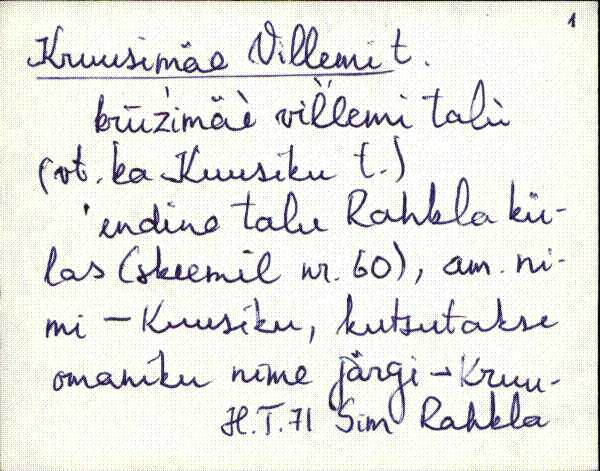 1
Kruusimäe Villemi t.
krūz'imäè vil̀lemi talù
(vt. ka Kuusiku t.)
'endine talu Rahkla kü-
las (skeemil nr. 60), am. ni-
mi - Kuusiku, kutsutakse
omaniku nime järgi - Kruu-
H.T. 71 Sim Rahkla